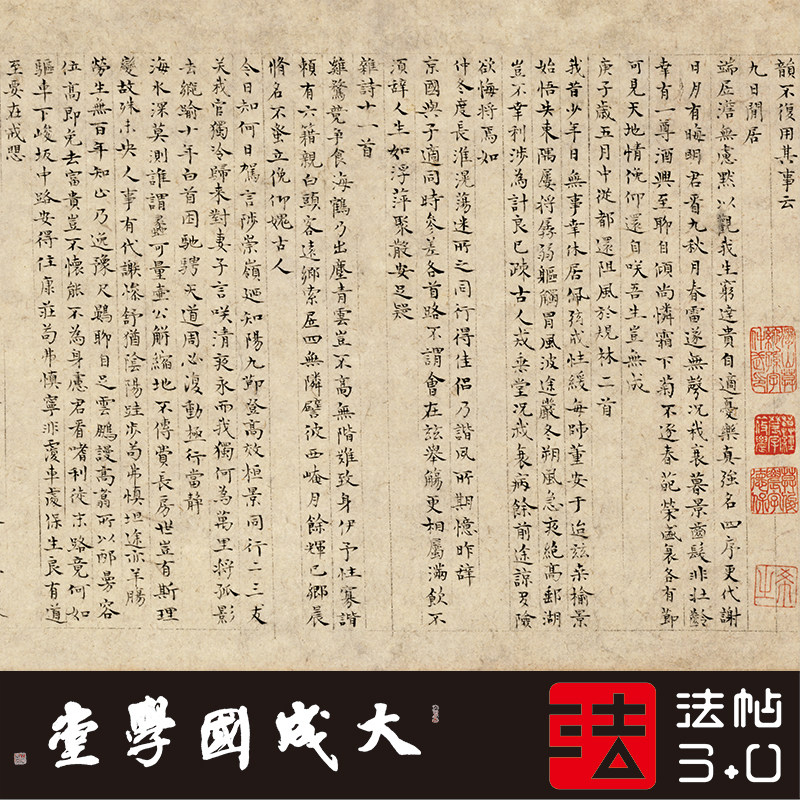 韻不復用其事云
九日閒居
端居澹無慮默以觀我生窮達貴自適憂樂真強名四序更代謝
日月有晦明君看九秋月春雷遂無聲況我衰暮景齒髮非壯齡
幸有一尊酒興至聊自傾尚憐霜下菊不逐春葩榮盛衰各有節
可見天地情俛仰還自咲吾生豈無成
庚子歲五月中從都還阻風於規林二首
我昔少年日無事幸休居佩戒性緩每師董安于迨茲桑榆景
始悟失東隅屢將孱弱軀觸冒風波途嚴冬朔風急夜絕高郵湖
豈不幸利涉為計良已疎古人戒垂堂況我衰病餘前途諒多險
欲悔將焉如
仲冬度長淮滉蕩迷所之同行得佳侶乃諧夙所期憶昨辭
京國與子適同時參差各首路不謂會在茲舉觴更相屬滿飲不
須辭人生如浮萍聚散安足疑
雜詩十一首
雞鶩競爭食海鶴乃出塵青雲豈不高無階難致身伊予性寡諧
頼有六籍親白頭客遠鄉索居四無隣譬彼西崦月餘輝已鄉晨
脩名不蚤立俛仰媿古人
今日知何日駕言陟崇嶺廻知陽九節登高放桓景同行二三友
笑我官獨冷歸來對妻子言咲清夜永而我獨何為萬里將孤影
去縱踰十年白首困馳騁天道周必復動極行當靜
海水深莫測誰謂蠡可量壺公解縮地不傳賞長房世豈有斯理
變故殊未央人事有代謝慘舒猶陰陽跬步苟弗慎坦途亦羊腸
勞生無百年知止乃逸豫尺鷃聊自足雲鵬謾高翥所以邴曼容
位高即免去富貴豈不懷能不為身慮君看嗜利徒末路竟何如
驅車下峻坂中路安得住康莊苟弗慎寧非覆車處保生良有道
至要在戒懼
大成國學堂
法
法帖
3.0